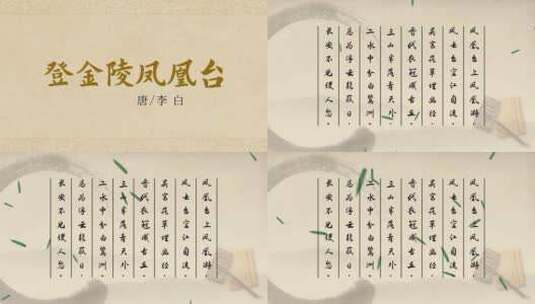 登金陵凤凰台
唐/李 白
凤凰台上凤凰游，
凤去台空江自流。
吴宫花草埋幽径，
晋代衣冠成古丘。
三山半落青天外，
二水中分白鹭洲。
总为浮云能蔽日，
长安不见使人愁。
凤凰台上凤凰游，
凤去台空江自流。
吴宫花草埋幽径，
晋代衣冠成古丘。
三山半落青天外，
二水中分白鹭洲。
总为浮云能蔽日，
长安不见使人愁。
凤凰台上凤凰游，
凤去台空江自流。
吴宫花草埋幽径，
晋代衣冠成古丘。
三山半落青天外，
二水中分白鹭洲。
总为浮云能蔽日，
长安不见使人愁。